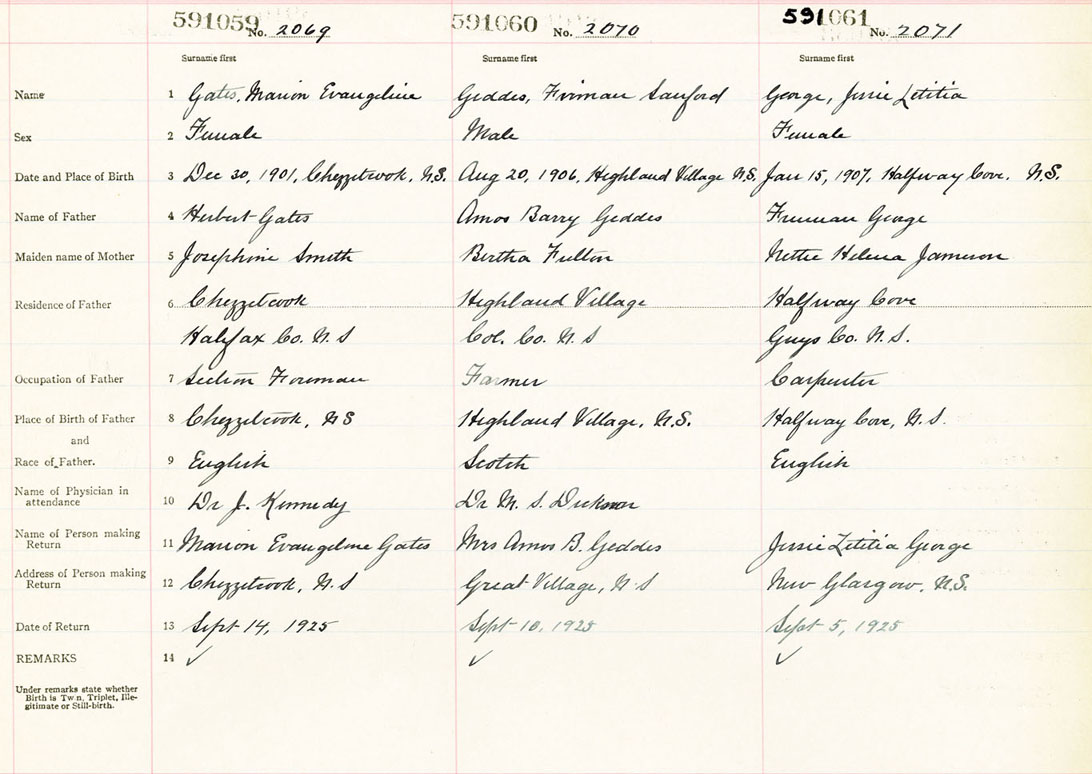 591059 No. 2069 591060 No. 2070 591061 No. 2071
Surname first Surname first Surname first
Name 1 Gates, Marion Evangeline Geddes, Firman Sanford George, Jessie Letitia
Sex 2 Female Male Female
Date and Place of Birth 3 Dec 30, 1901, Chezzetcook, N.S. Aug 20, 1906, Highland Village N.S. Jan 15, 1907, Halfway Cove. N.S.
Name of Father 4 Herbert Gates Amos Barry Geddes Freeman George
Maiden name of Mother 5 Josephine Smith Bertha Fulton Nettie Helena Jameson
Residence of Father 6 Chezzetcook Highland Village Halfway Cove
Halifax Co. N.S Col. Co. N.S Guys Co. N.S.
Occupation of Father 7 Section Foreman Farmer Carpenter
Place of Birth of Father 8 Chezzetcook, NS Highland Village, N.S. Halfway Cove, N.S.
and
Race of Father. 9 English Scotch English
Name of Physician in
attendance 10 Dr J. Kennedy Dr M. S. Dickson
Name of Person making
Return 11 Marion Evangeline Gates Mrs Amos B. Geddes Jessie Letitia George
Address of Person making
Return 12 Chezzetcook, N.S Great Village, N.S New Glasgow, N.S.
Date of Return 13 Sept 14, 1925 Sept 10, 1925 Sept 5, 1925
REMARKS 14 ✓ ✓ ✓
Under remarks state whether
Birth is Twin, Triplet, Ille-
gitimate or Still-birth.